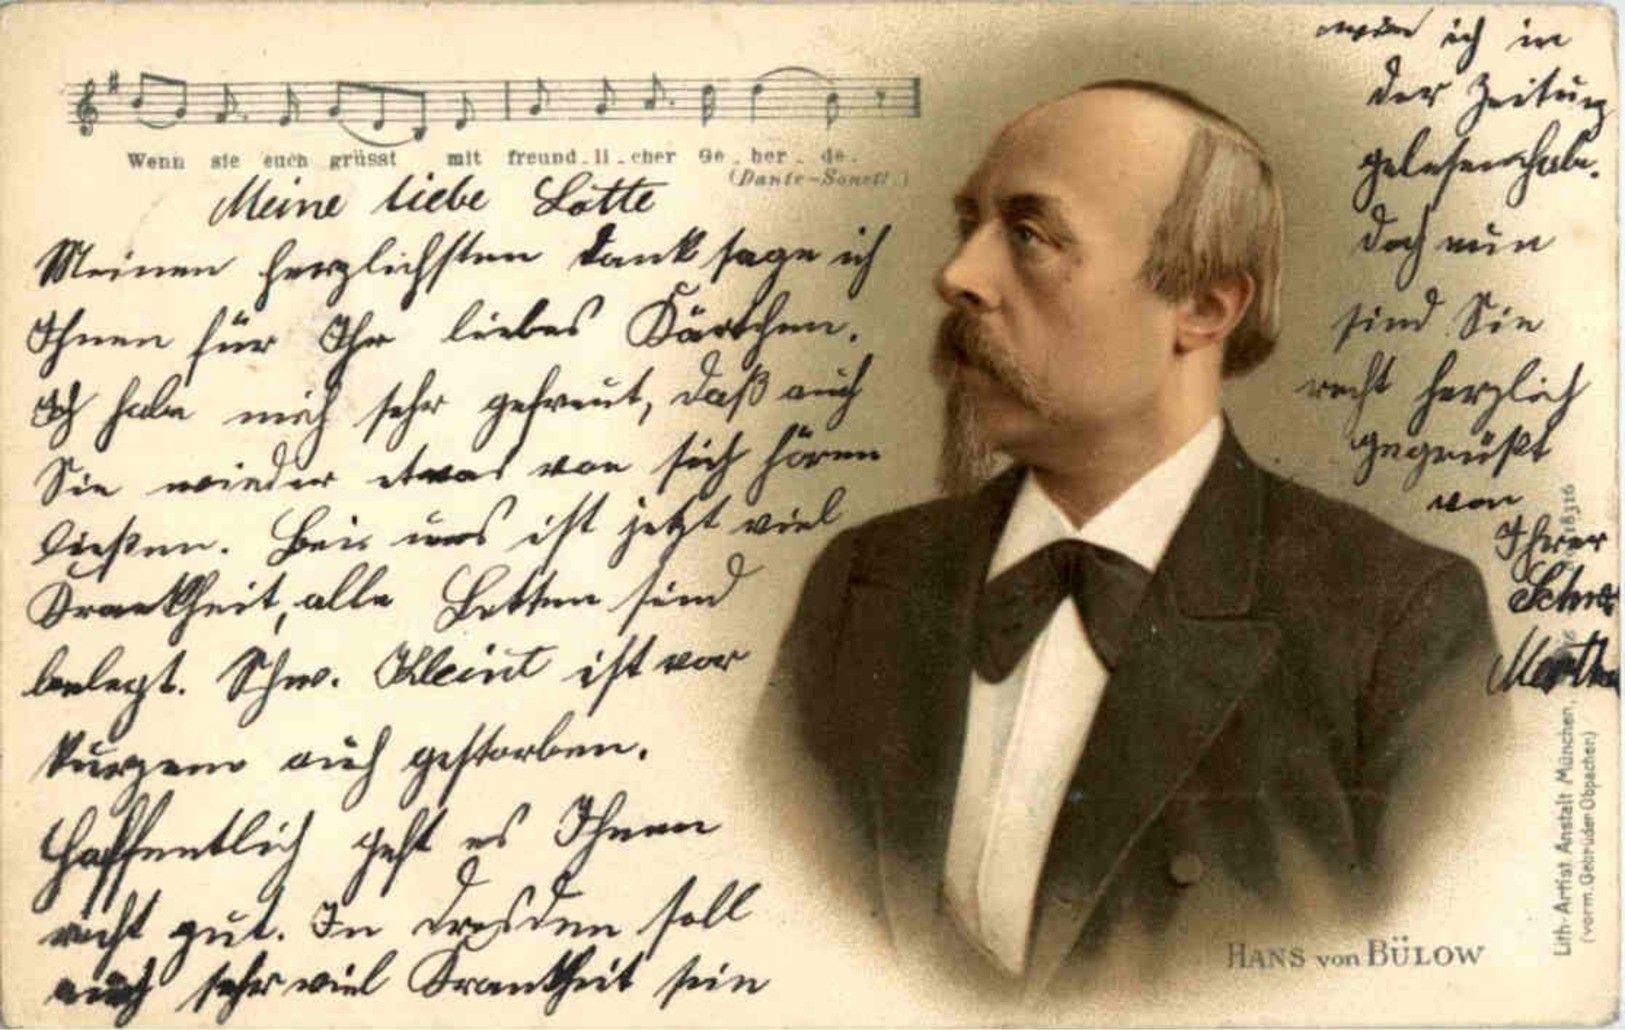 Wenn sie euch grüsst mit freund-li-cher Ge-ber-de.
(Dante-Sonett.)
Meine liebe Lotte
Meinen herzlichsten Dank sage ich
Ihnen für Ihr liebes Kärtchen.
Ich habe mich sehr gefreut, daß auch
Sie wieder etwas von sich hören
ließen. Bei uns ist jetzt viel
Krankheit, alle Betten sind
belegt. Schw. Kleint ist vor
kurzem auch gestorben.
Hoffentlich geht es Ihnen
recht gut. In Dresden soll
auch sehr viel Krankheit sein
wie ich in
der Zeitung
gelesen habe.
Doch nun
sind Sie
recht herzlich
gegrüßt
von
Ihrer
Schw.
Martha
HANS von BÜLOW
Lith.-Artist. Anstalt München, 18316
(vorm. Gebrüder Obpacher)